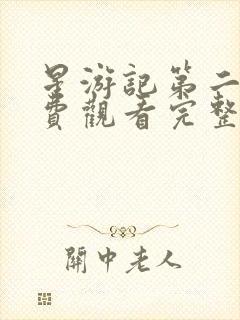 星游記第二
費觀看完整
關中老人